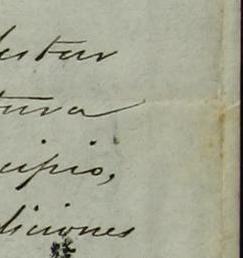 estar
tura
cipio,
diciones